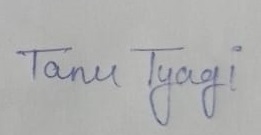 Tanu Tyagi